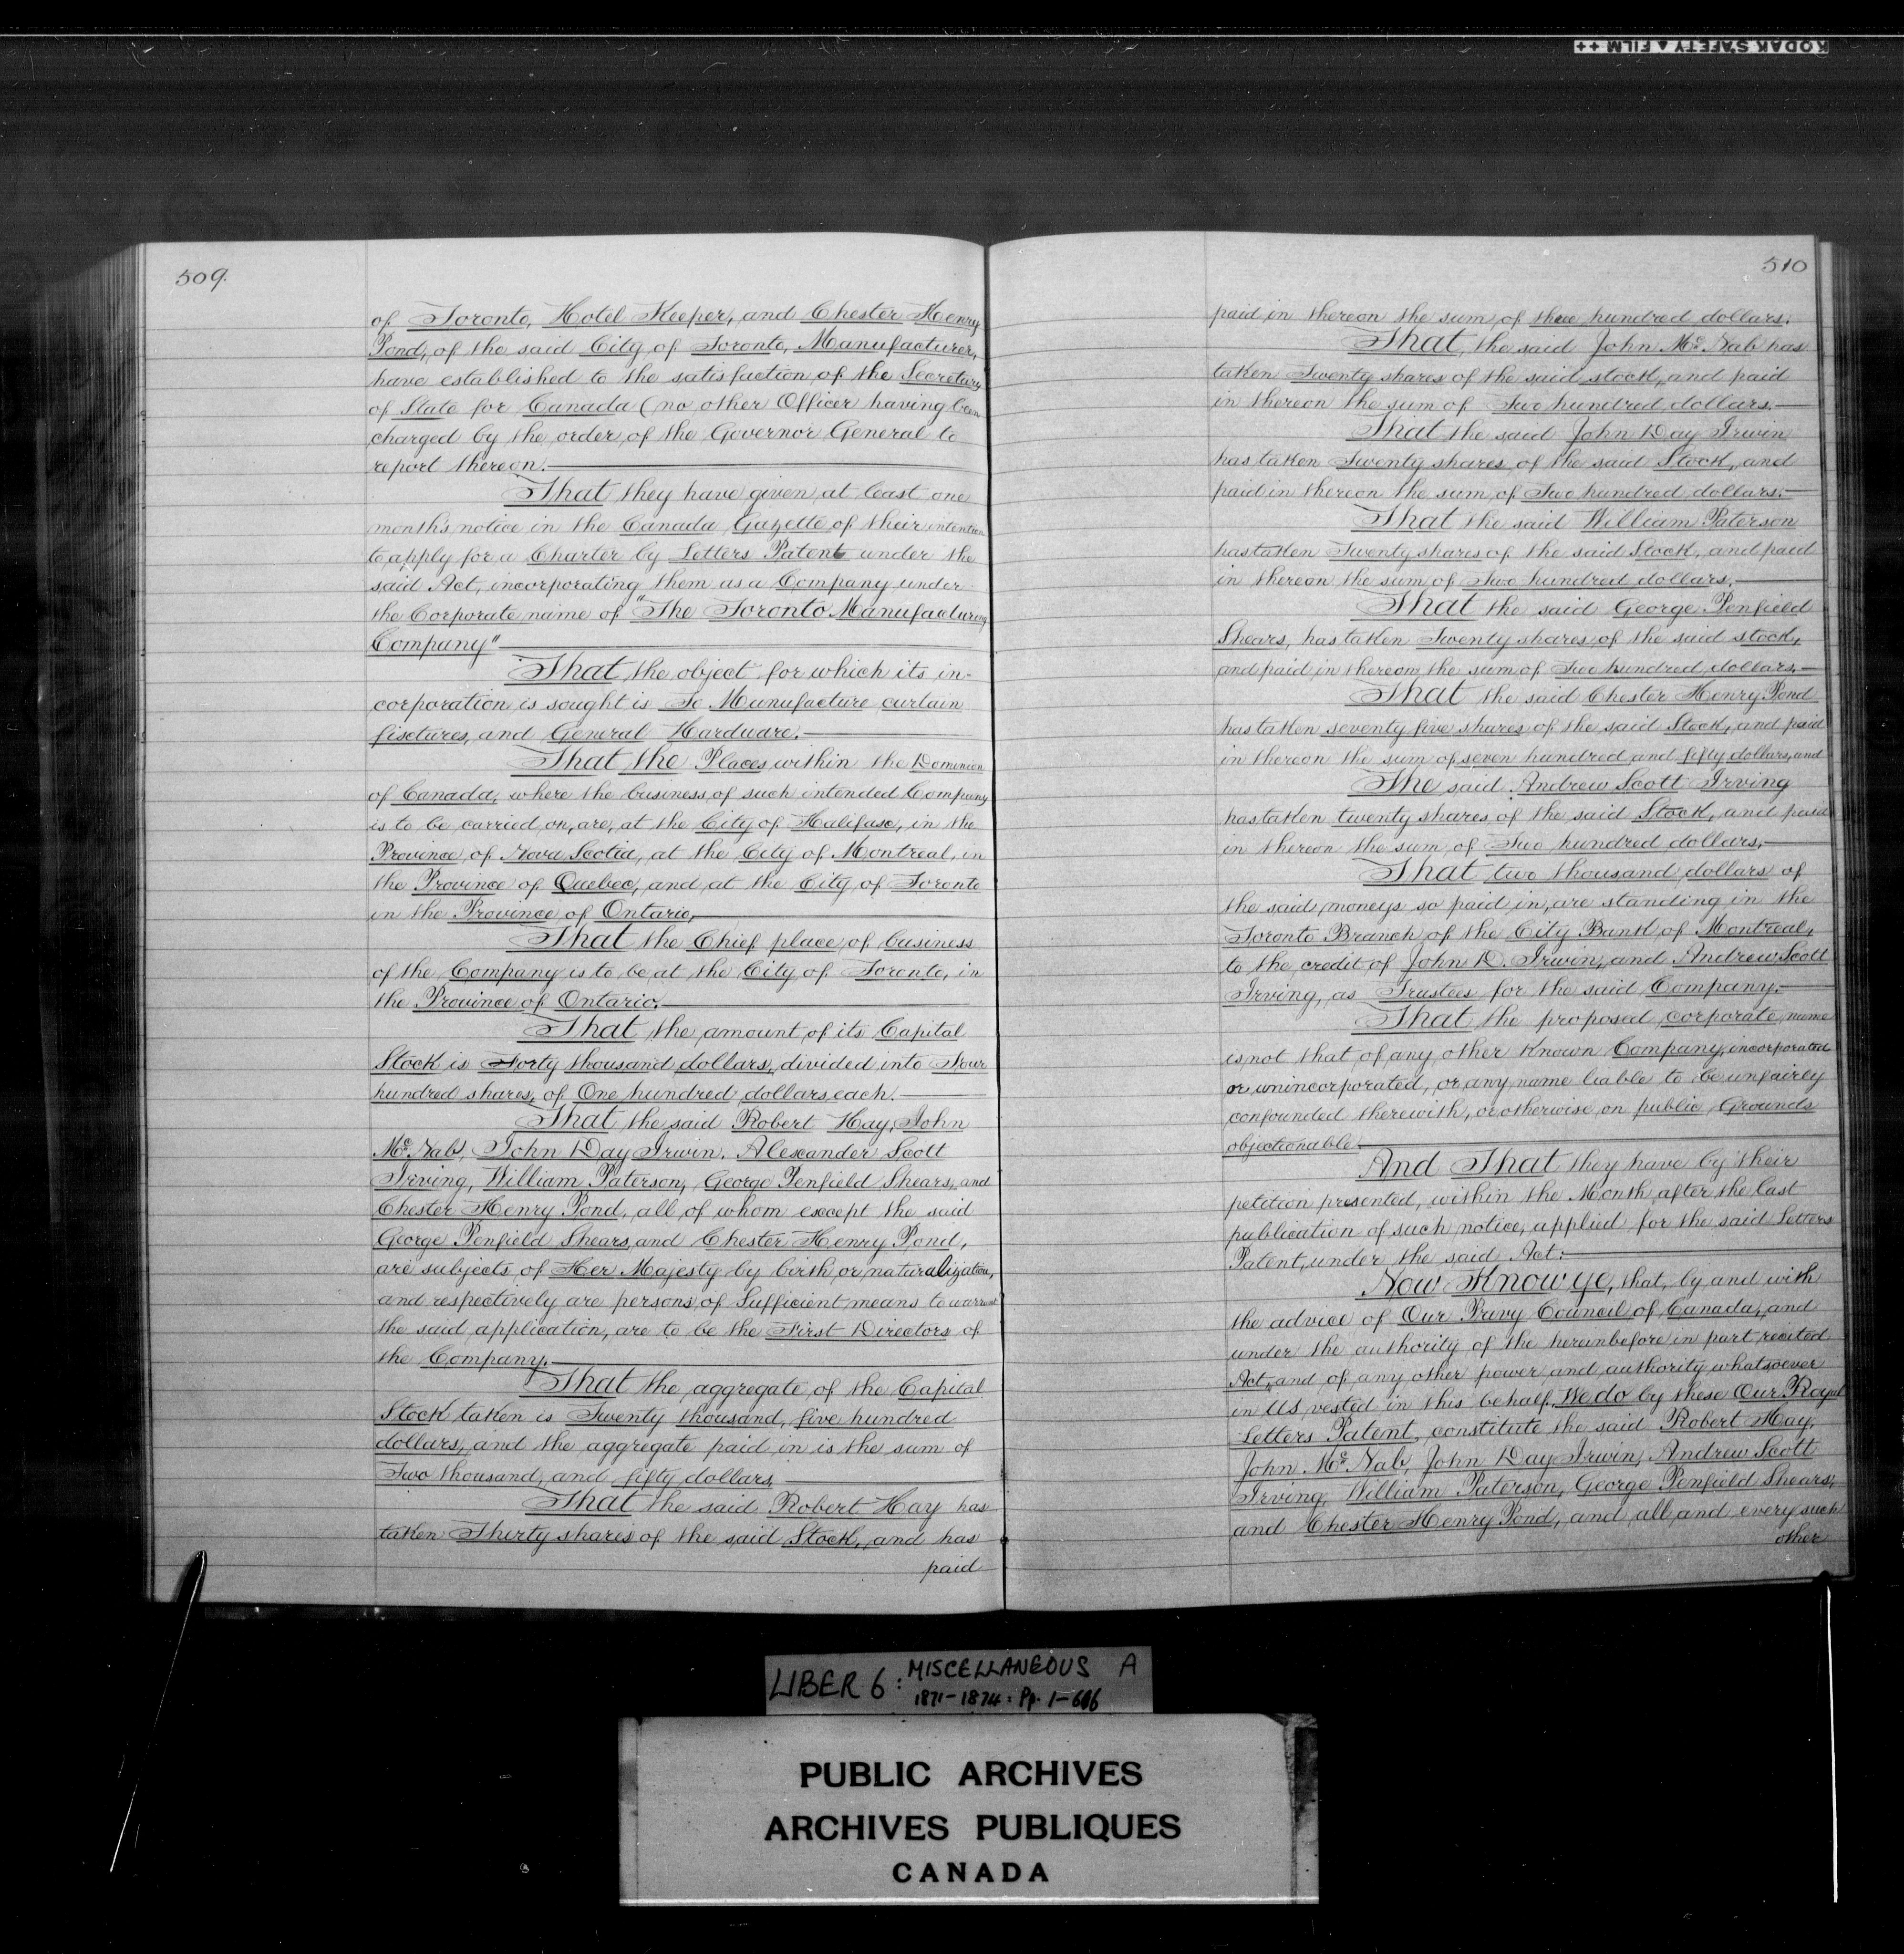 KODAK SAFETY ▲ FILM ++
509.
of Toronto, Hotel Keeper, and Chester Henry
Pond, of the said City of Toronto, Manufacturer,
have established to the satisfaction of the Secretary
of State for Canada (no other Officer having been
charged by the order of the Governor General to
report thereon.
That they have given at least one
month's notice in the Canada Gazette of their intention
to apply for a Charter by Letters Patent under the
said Act, incorporating them as a Company under
the Corporate name of "The Toronto Manufacturing
Company"
That the object for which its in-
corporation is sought is To Manufacture curtain
fixtures, and General Hardware.
That the Places within the Dominion
of Canada, where the business of such intended Company
is to be carried on, are, at the City of Halifax, in the
Province of Nova Scotia, at the City of Montreal, in
the Province of Quebec, and at the City of Toronto
in the Province of Ontario,
That the Chief place of business
of the Company is to be at the City of Toronto, in
the Province of Ontario.
That the amount of its Capital
Stock is Forty thousand dollars, divided into Four
hundred shares, of One hundred dollars each.
That the said Robert Hay, John
Mc. Nab, John Day Irwin, Alexander Scott
Irving, William Paterson, George Penfield Shears, and
Chester Henry Pond, all of whom except the said
George Penfield Shears, and Chester Henry Pond,
are subjects of Her Majesty by birth or naturalization,
and respectively are persons of Sufficient means to warrant
the said application, are to be the First Directors of
the Company.
That the aggregate of the Capital
Stock taken is Twenty thousand, five hundred
dollars, and the aggregate paid in is the sum of
Two thousand, and fifty dollars,
That the said Robert Hay has
taken Thirty shares of the said Stock, and has
paid
510
paid in thereon the sum of three hundred dollars.
That, the said John Mc. Nab has
taken Twenty shares of the said stock, and paid
in thereon the sum of Two hundred dollars.
That the said John Day Irwin
has taken Twenty shares of the said Stock, and
paid in thereon the sum of Two hundred dollars.
That the said William Paterson
has taken Twenty shares of the said Stock, and paid
in thereon the sum of Two hundred dollars.
That the said George Penfield
Shears, has taken Twenty shares of the said stock,
and paid in thereon the sum of Two hundred dollars.
That the said Chester Henry Pond
has taken seventy five shares of the said Stock, and paid
in thereon the sum of seven hundred and fifty dollars, and
The said Andrew Scott Irving
has taken twenty shares of the said Stock, and paid
in thereon the sum of Two hundred dollars.
That two thousand dollars of
the said moneys so paid in, are standing in the
Toronto Branch of the City Bank of Montreal,
to the credit of John D. Irwin, and Andrew Scott
Irving, as Trustees for the said Company.
That the proposed corporate name
is not that of any other known Company, incorporated
or unincorporated, or any name liable to be unfairly
confounded therewith, or otherwise on public Grounds
objectionable.
And That they have by their
petition presented, within the Month after the last
publication of such notice, applied for the said Letters
Patent, under the said Act:
Now Know ye, that, by and with
the advice of Our Privy Council of Canada, and
under the authority of the hereinbefore in part recited
Act, and of any other power and authority whatsoever
in US vested in this behalf, We do by these Our Royal
Letters Patent, constitute the said Robert Hay,
John Mc. Nab, John Day Irwin, Andrew Scott
Irving, William Paterson, George Penfield Shears,
and Chester Henry Pond, and all and every such
other
LIBER 6: MISCELLANEOUS A
1871-1874. Pp. 1-606
PUBLIC ARCHIVES
ARCHIVES PUBLIQUES
CANADA